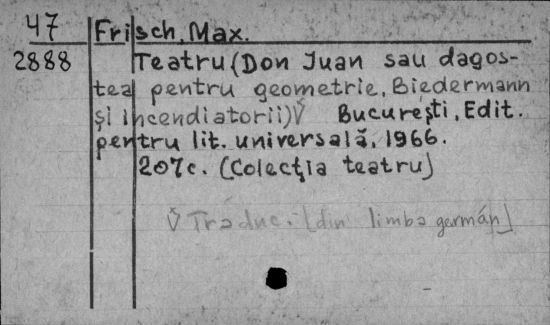 47 Frisch, Max.
2888 Teatru (Don Juan sau dagos-
tea pentru geometrie, Biedermann
și incendiatorii) V București, Edit.
pentru lit. universală, 1966.
207c. (Colecția teatru)
V Traduc. [din limba germán]